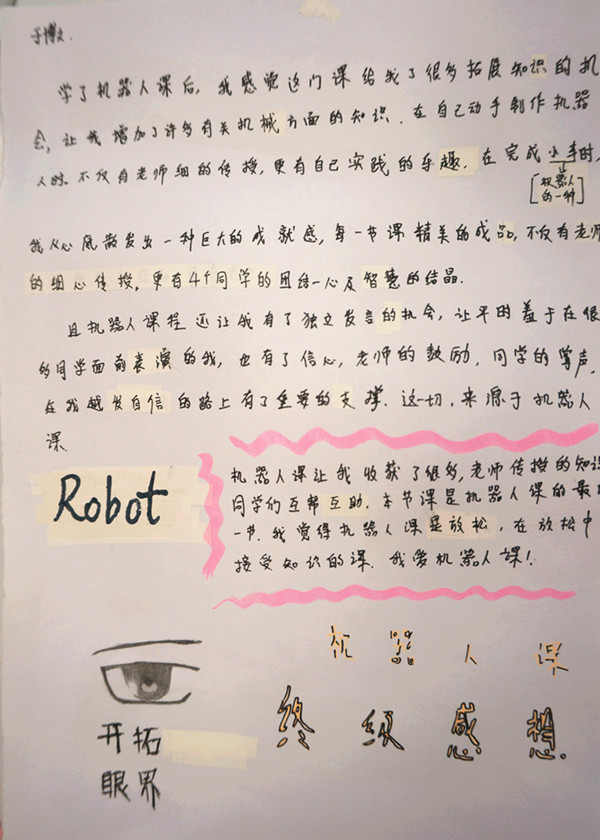 于博文.
学了机器人课后,我感觉这门课给我了很多拓展知识的机
会,让我增加了许多有关机械方面的知识.在自己动手制作机器
人时.不仅有老师细的传授,更有自己实践的乐趣.在完成小车时,
[机器人
的一种]
我从心底散发出一种巨大的成就感,每一节课精美的成品,不仅有老师
的细心传授,更有4个同学的团结一心及智慧的结晶.
且机器人课程还让我有了独立发言的机会,让平时羞于在很
多同学面前表演的我,也有了信心,老师的鼓励,同学的掌声,
在我越发自信的路上有了重要的支撑.这一切,来源于机器人
课
Robot
机器人课让我收获了很多,老师传授的知识
同学们互帮互助.本节课是机器人课的最
一节.我觉得机器人课是放松,在放松中
接受知识的课.我爱机器人课!
机器人课
终级感想.
开拓
眼界